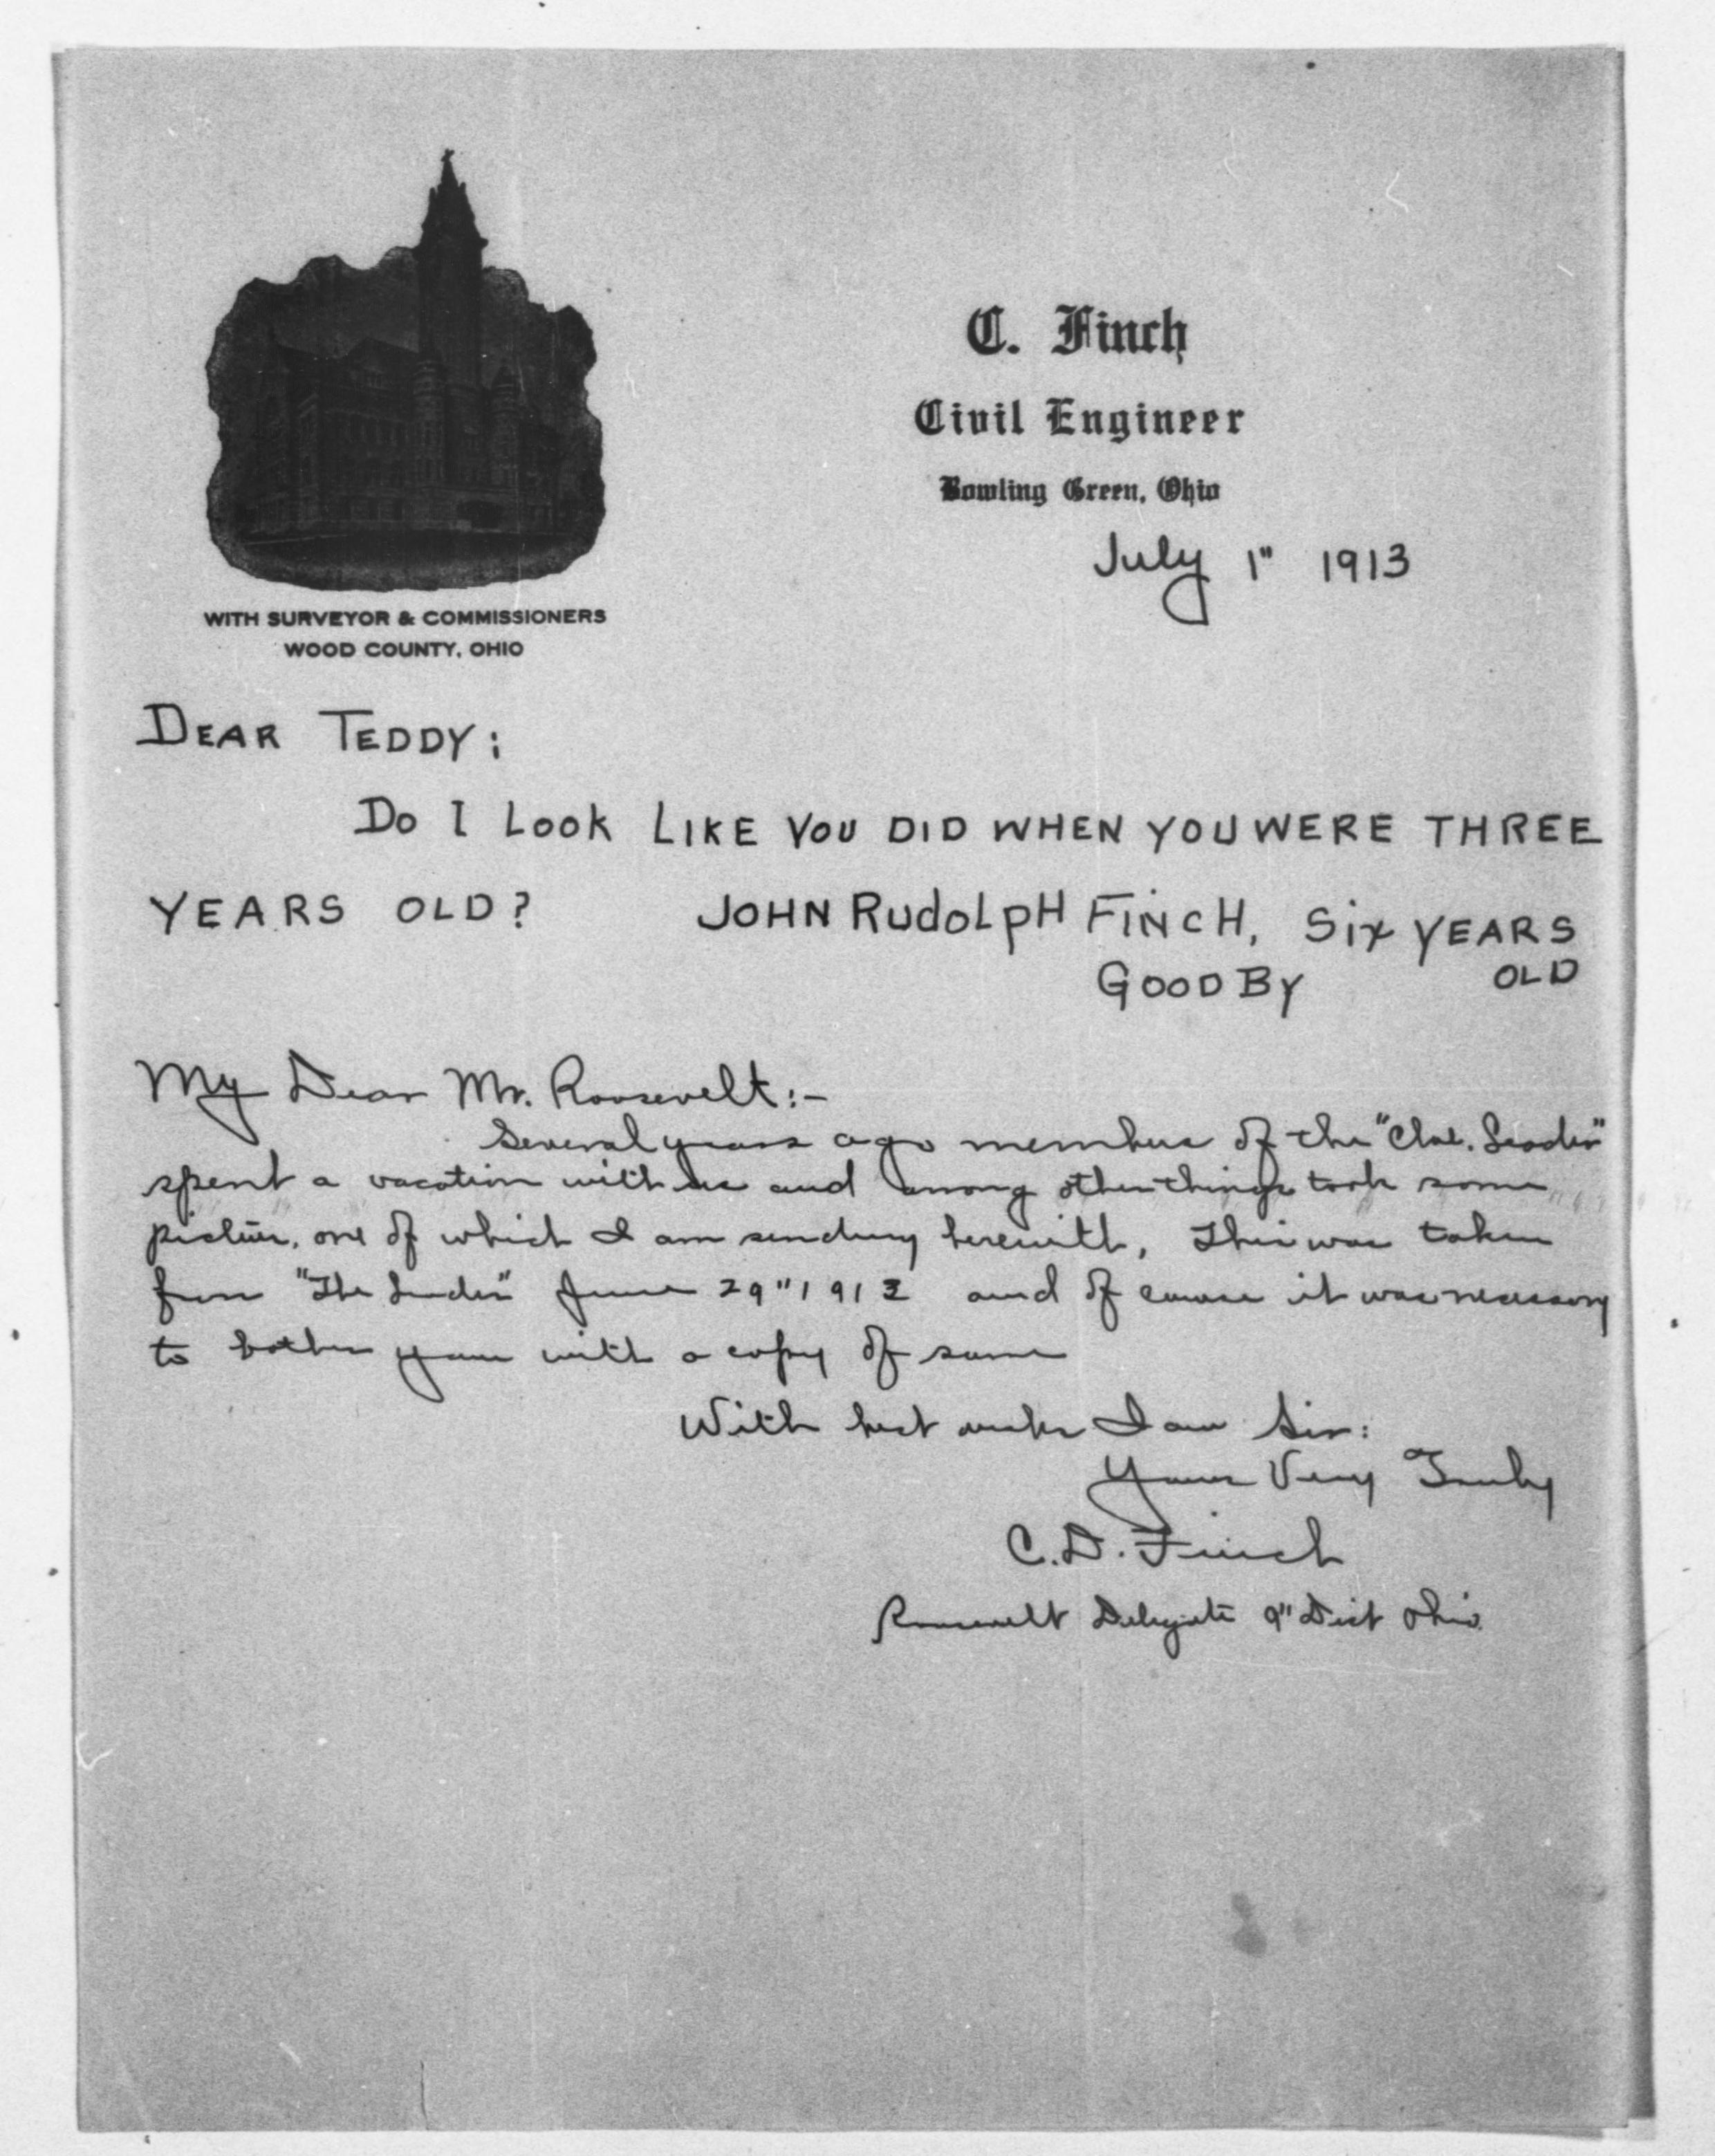 C. Finch
Civil Engineer
Bowling Green, Ohio
July 1" 1913
WITH SURVEYOR & COMMISSIONERS
WOOD COUNTY, OHIO
DEAR TEDDY:
DO I LOOK LIKE YOU DID WHEN YOU WERE THREE
YEARS OLD? JOHN RUDOLPH FINCH, SIX YEARS
GOODBY OLD
My Dear Mr. Roosevelt:-
Several years ago members of the "Clev. Leader"
spent a vacation with us and among other things took some
pictures, one of which I am sending herewith, This was taken
from "The Leader" June 29" 1913 and of course it was necessary
to bother you with a copy of same
With best wishes I am Sir:
Yours Very Truly
C.D. Finch
Roosevelt Delegate 9" Dist Ohio.